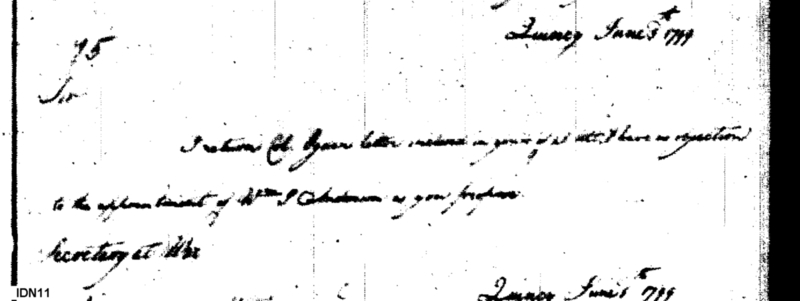 Quincy June 5th 1799
95
Sir
I return Col. Ogdens letter inclosed in yours of 25 ult. I have no objection
to the appointment of Wm S Anderson as you propose
Secretary at War
Quincy June th 1799
IDN11